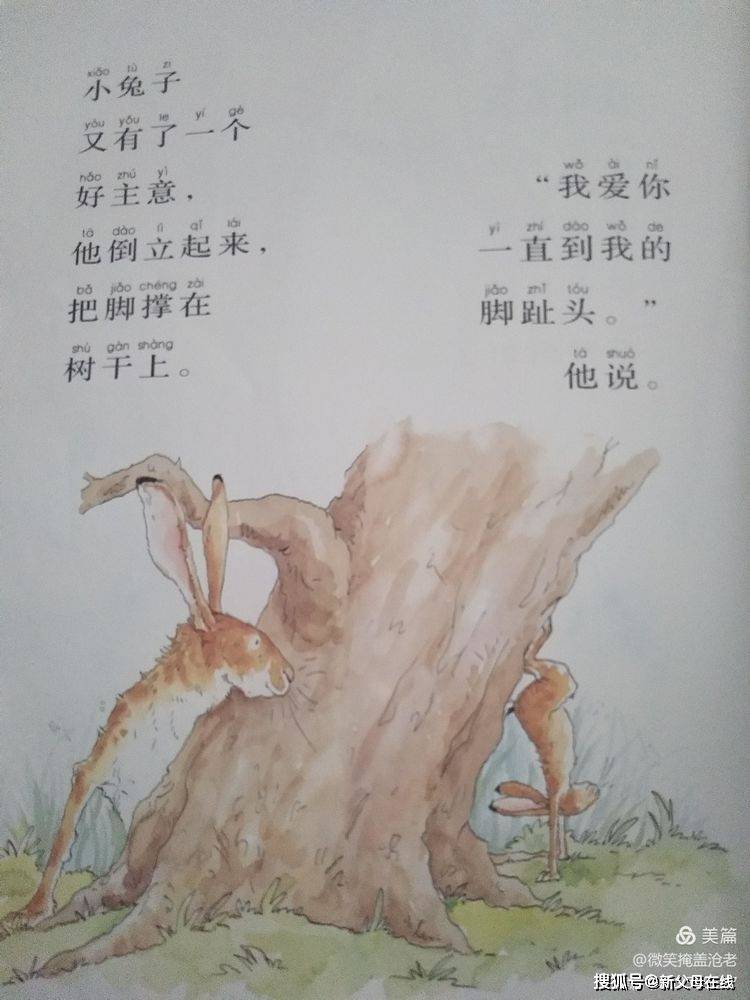 xiǎo tù zi
小兔子
yòu yǒu le yí gè
又有了一个
hǎo zhú yì
好主意，
tā dào lì qǐ lái
他倒立起来，
bǎ jiǎo chéng zài
把脚撑在
shù gàn shàng
树干上。
wǒ ài nǐ
“我爱你
yì zhí dào wǒ de
一直到我的
jiǎo zhǐ tóu
脚趾头。”
tā shuō
他说。
美篇
@微笑掩盖沧老
搜狐号@新父母在线